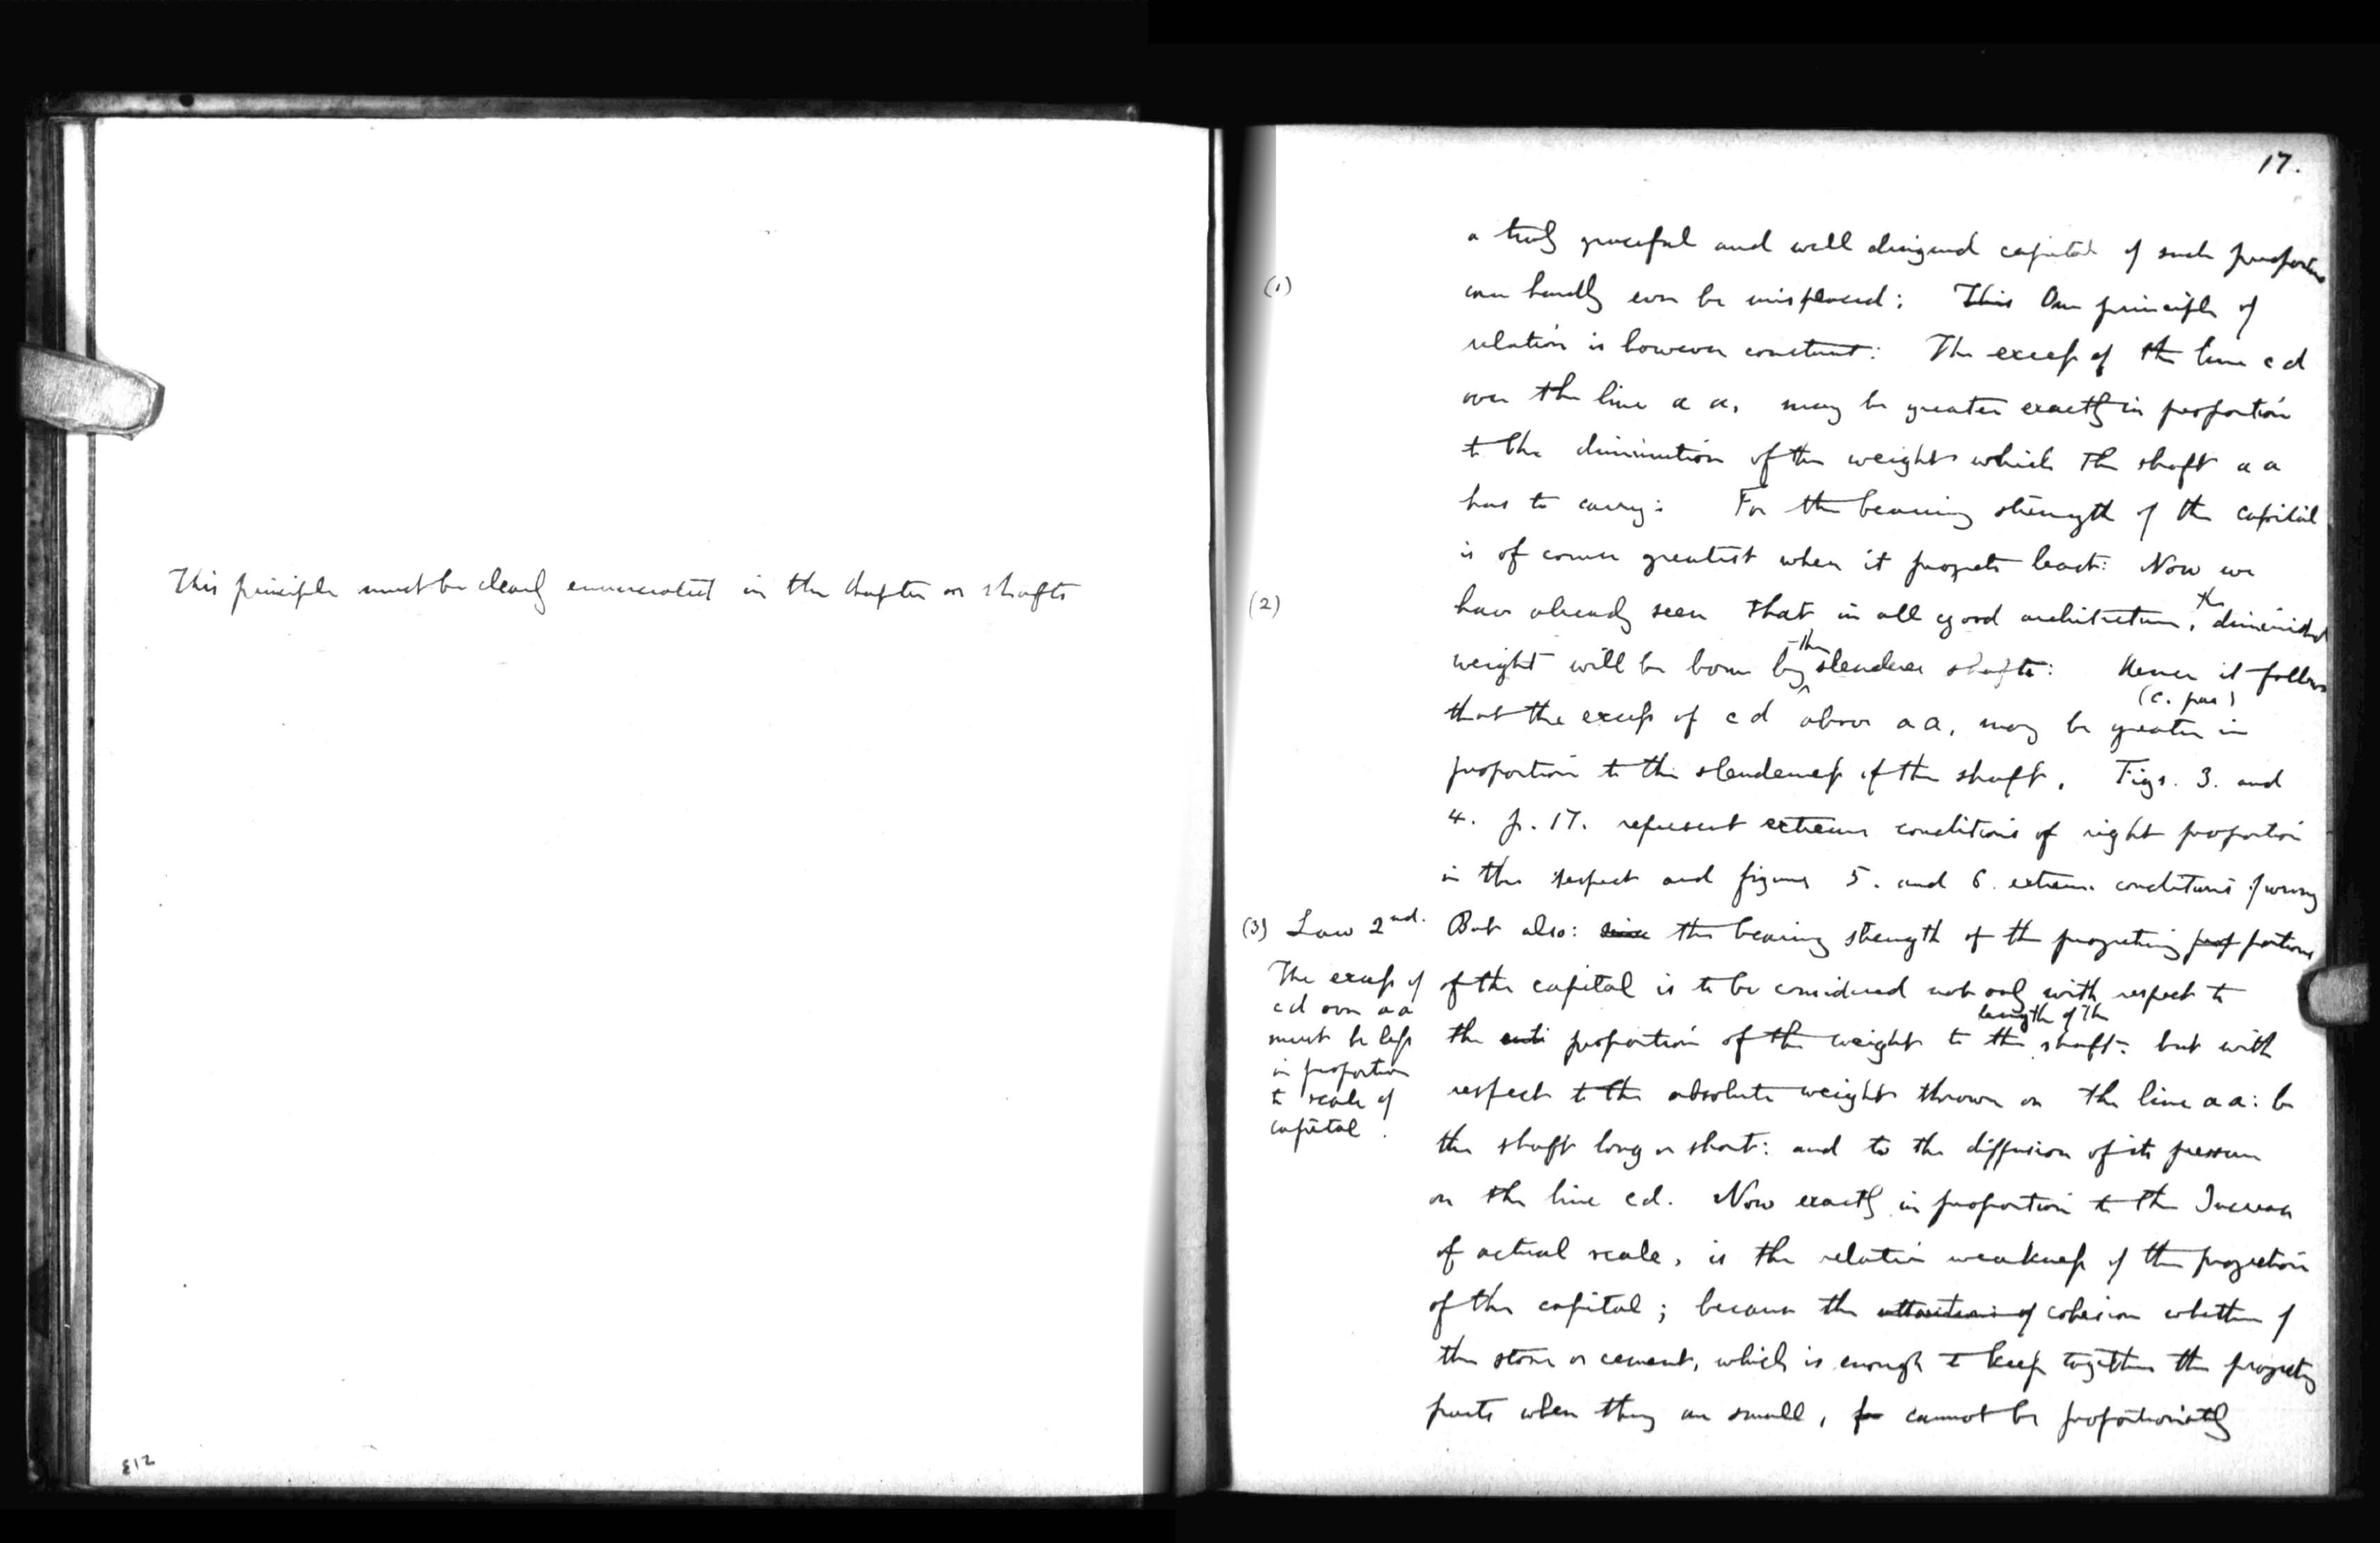 This principle must be clearly enunciated in the chapter on shafts
17.
a truly graceful and well designed capital of such proportions
(1)
can hardly ever be misplaced: This One principle of
relation is however constant: The excess of the line c d
over the line a a, may be greater exactly in proportion
to the diminution of the weight which the shaft a a
has to carry: For the bearing strength of the capital
is of course greatest when it projects least: Now we
(2)
have already seen that in all good architecture, the diminished
weight will be borne by the slenderer shafts: Hence it follows
(c. par)
that the excess of c d above a a, may be greater in
proportion to the slenderness of the shaft. Figs. 3. and
4. p. 17. represent extreme conditions of right proportion
in this respect and figures 5. and 6. extreme conditions of wrong
(3) Law 2nd.
The excess of
cd over aa
must be less
in proportion
to scale of
capital.
But also: since the bearing strength of the projecting prop portions
of the capital is to be considered not only with respect to
the proportion of the weight to the length of the shaft: but with
respect to the absolute weight thrown on the line a a: be
the shaft long or short: and to the diffusion of its pressure
on the line cd. Now exactly in proportion to the Increase
of actual scale, is the relative weakness of the projection
of the capital; because the of cohesion whether of
the stone or cement, which is enough to keep together the projecting
parts when they are small, cannot be proportionately